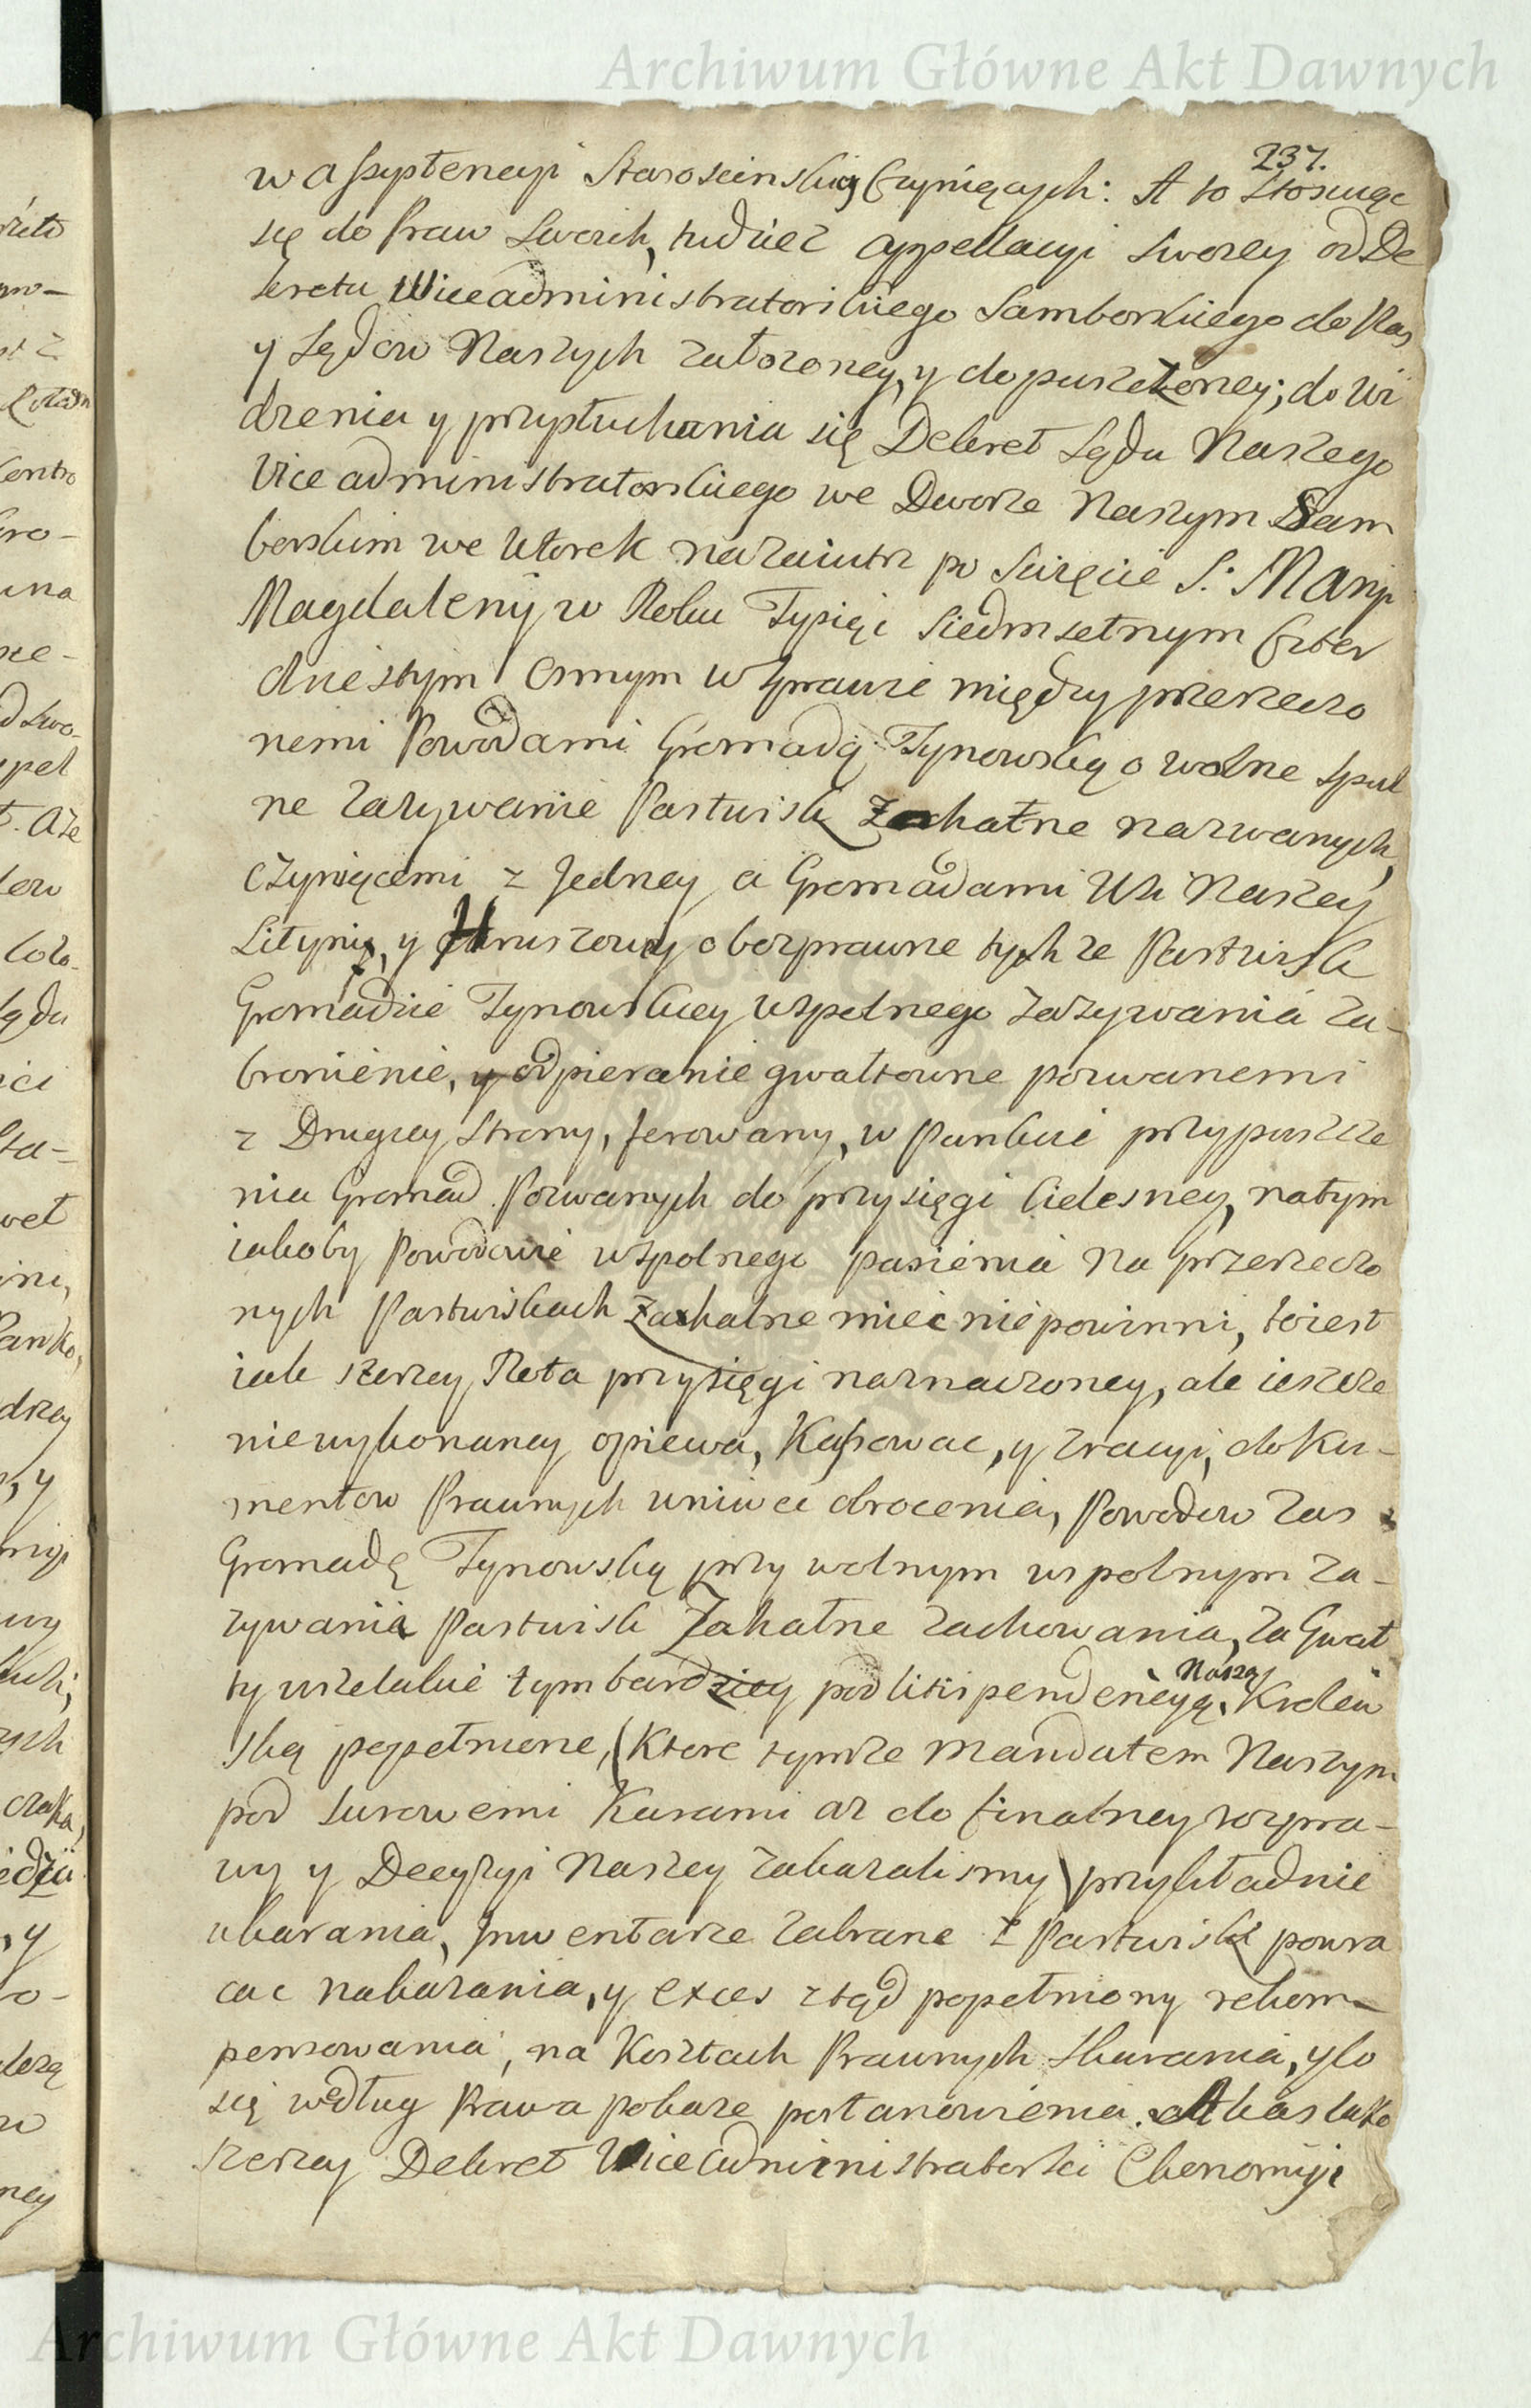 Archiwum Główne Akt Dawnych
237.
w assystencyi Staroscinskiey czyniących: A to Stosuiąc
się do Praw Swoich, tudziesz appellacyi Swoiey od De
kretu Wiceadministratorskiego Samborskiego do Nas
y Sądow Naszych załozoney, y dopuszczoney; do Wi
dzenia y przysłuchania się Dekret Sądu Naszego
Viceadministratorskiego we Dworze Naszym Sam
borskim we Wtorek nazaiutrz po Swięcie S: Maryi
Magdaleny w Roku Tysiąc Siedmsetnym Czter
dziestym Osmym w Sprawie między przerzeczo
nemi Powodami Gromadą Tynowską o wolne spul
ne zazywanie Pastwisk Zachatne nazwanych,
czyniącemi z Jedney a Gromadami Wsi Naszey
Lityni, y Hruszowy o bezprawne tychze Pastwisk
Gromadzie Tynowskiey wspolnego zazywania za-
bronienie, y odpieranie gwałtowne pozwanemi
z Drugiey Strony, ferowany, w Punkcie przypuszcze
nia Gromad Pozwanych do przysięgi cielesney, natym
iakoby Powodowie wspolnego pasienia na przerzeczo
nych Pastwiskach Zachatne miec niepowinni, toiest
iak szerzey Rota przysięgi naznaczoney, ale ieszcze
niewykonaney opiewa, Kassowac, y zracyi, doku-
mentow Prawnych wniwec obrocenia, Powodow zas
Gromadę Tynowską przy wolnym wspolnym za-
zywania Pastwisk Zahatne zachowania, za Gwał
ty wszelakie tym bardziey pod litispendencyą Naszą Krolew
ską popełnione, (Ktore tymze Mandatem Naszym
pod surowemi Karami az do finalney rozpra-
wy y Decyzyi Naszey zakazalismy) przykładnie
ukarania, Jnwentarze zabrane z Pastwisk powra
cac nakazania, y exces ztąd popełniony rekom-
pensowania, na Kosztach Prawnych Skarania, y co
się według Prawa pokaze postanowienia. Akas iako
szerzey Dekret Wiceadministratorski Ekonomiyi
Archiwum Główne Akt Dawnych